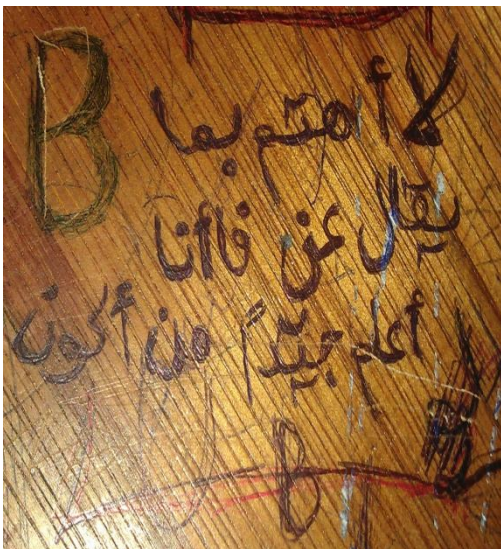 B
لا أهتم بما
يقال عني فأنا
أعلم جيّداً من أكون
B